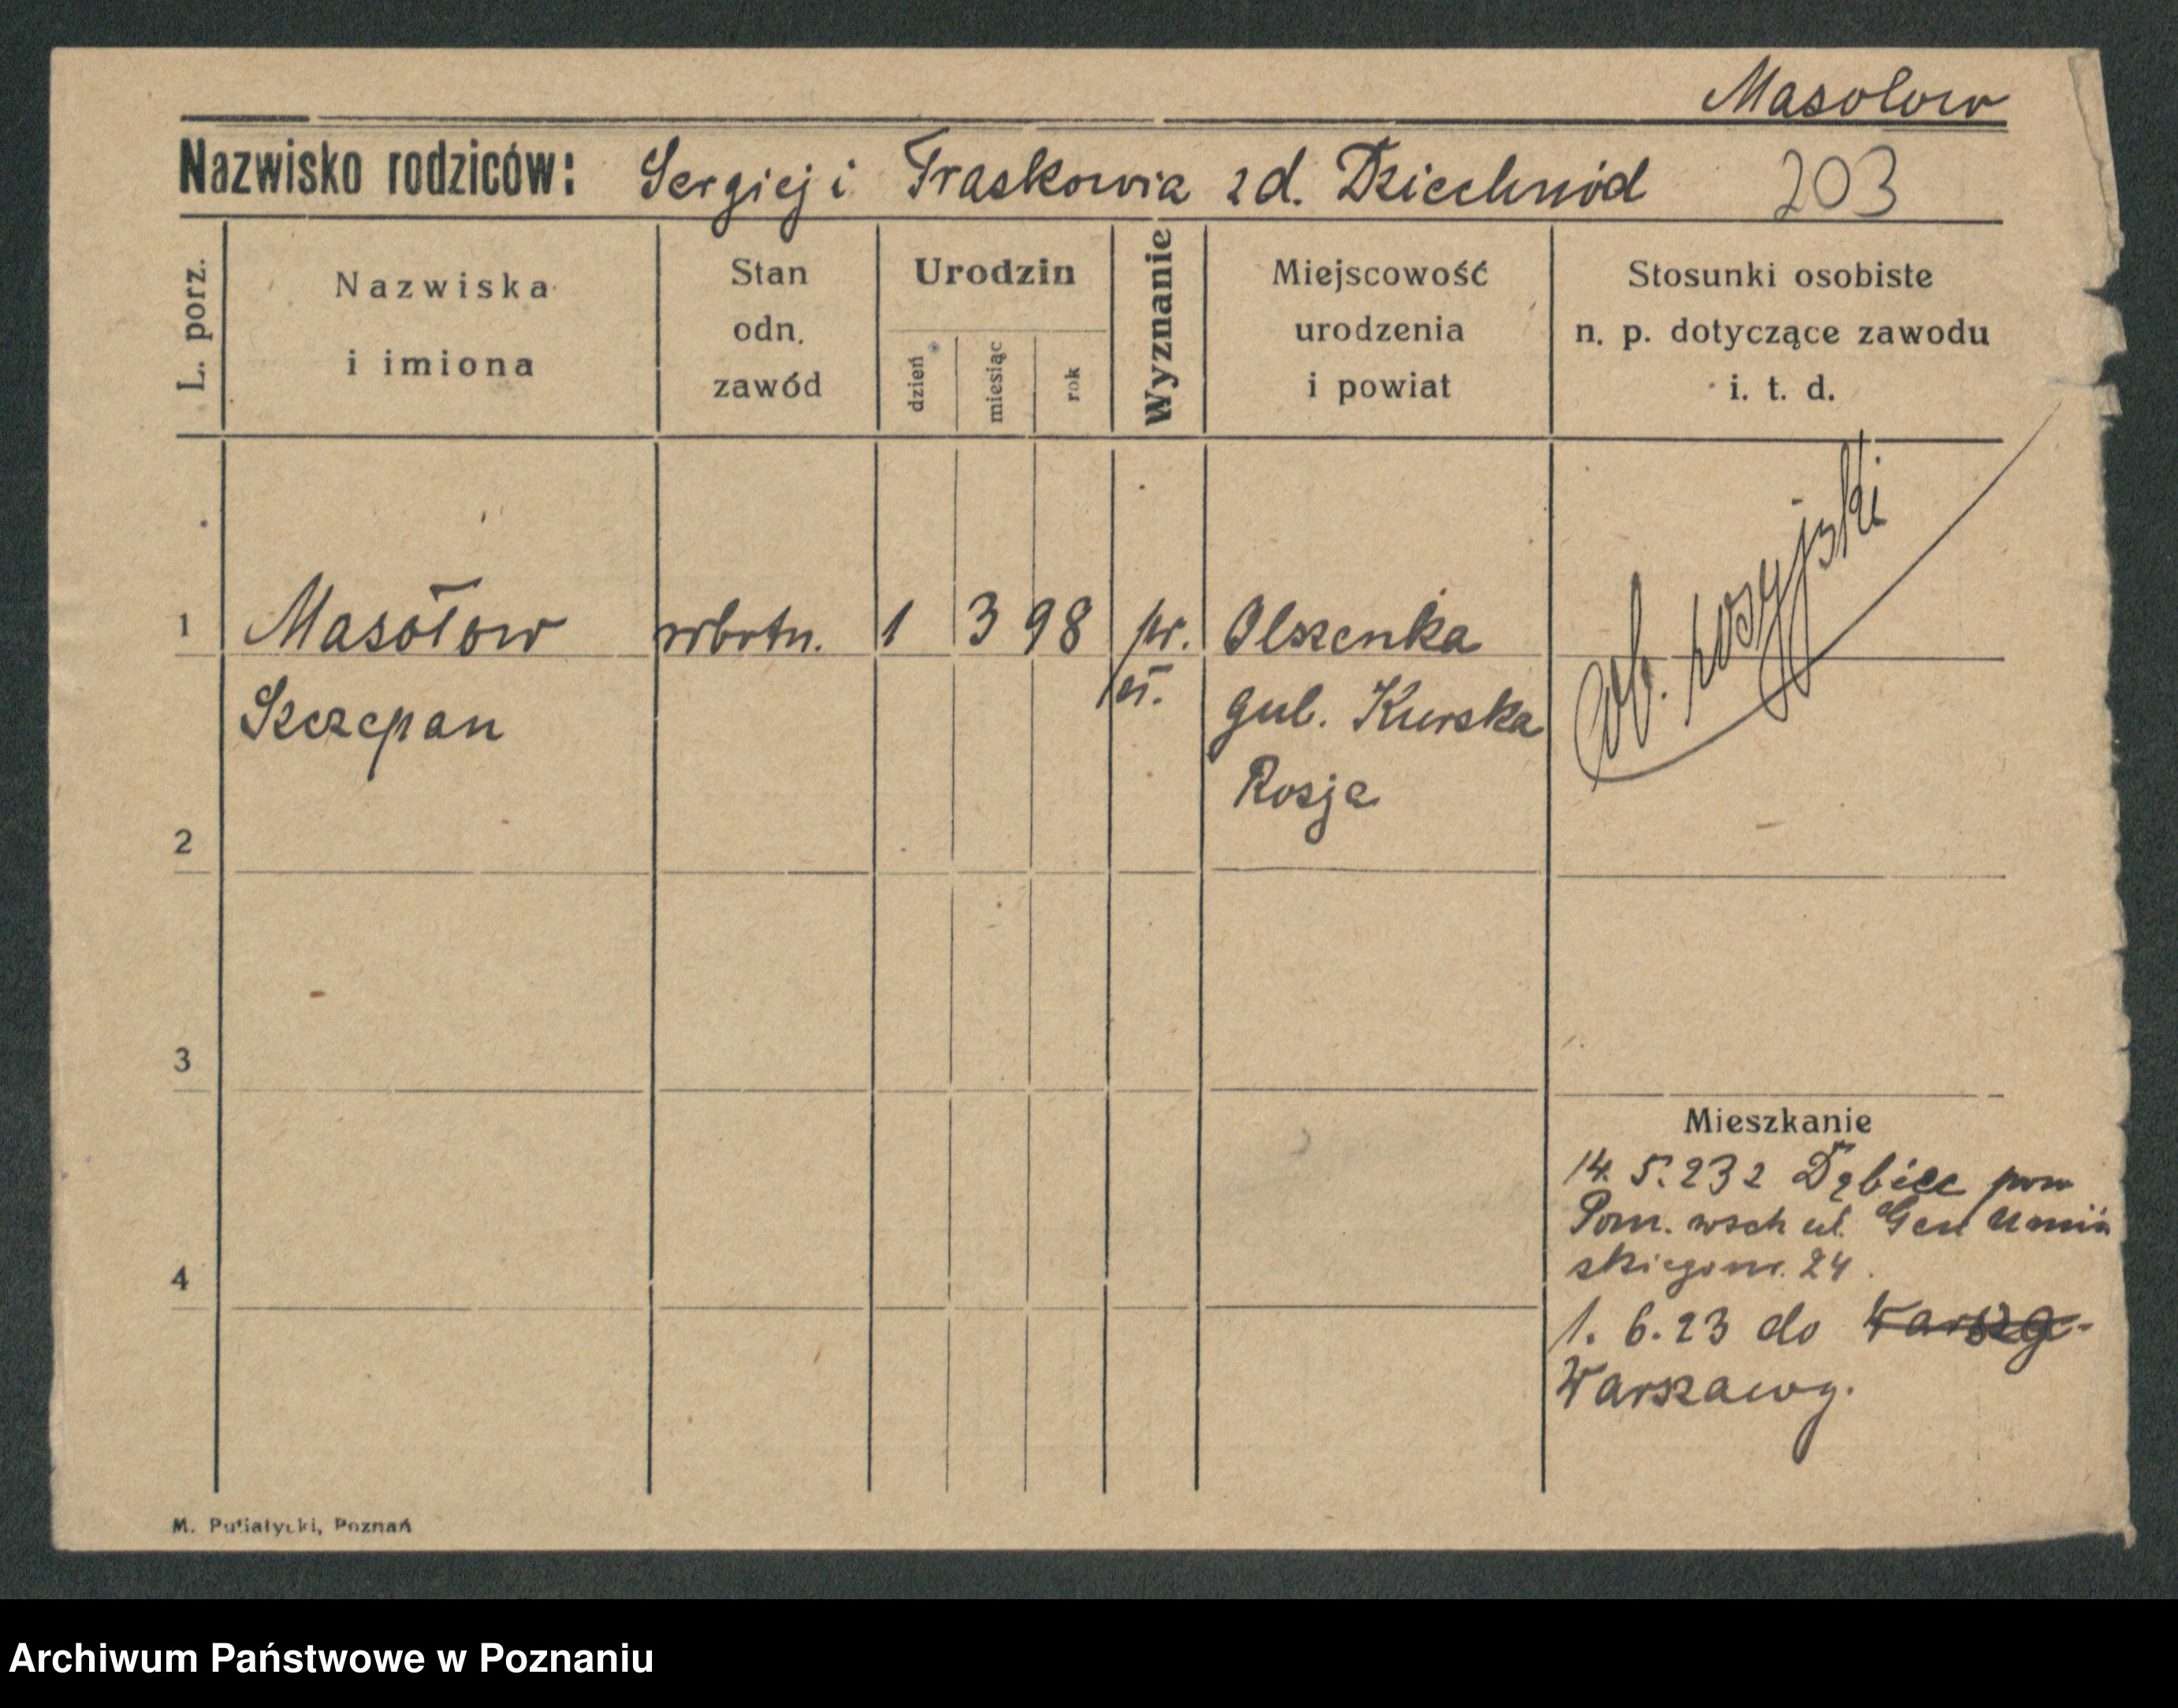 Masolow
Nazwisko rodziców: Sergiej i Fraskowia zd. Dziechnód 203
L. porz.
Nazwiska
i imiona
Stan
odn.
zawód
Urodzin
dzień
miesiąc
rok
Wyznanie
Miejscowość
urodzenia
i powiat
Stosunki osobiste
n. p. dotyczące zawodu
i. t. d.
1 Masołow robotn. 1 3 98 pr. Olszenka
Szczepan
gub. Kurska
Rosja
ob. rosyjski
2
3
4
Mieszkanie
14. 5. 23 z Dębiec pow
Pozn. wsch ul. Gen Umiń
skiego nr. 24.
1. 6. 23 do
Warszawy.
M. Putiatycki, Poznań
Archiwum Państwowe w Poznaniu